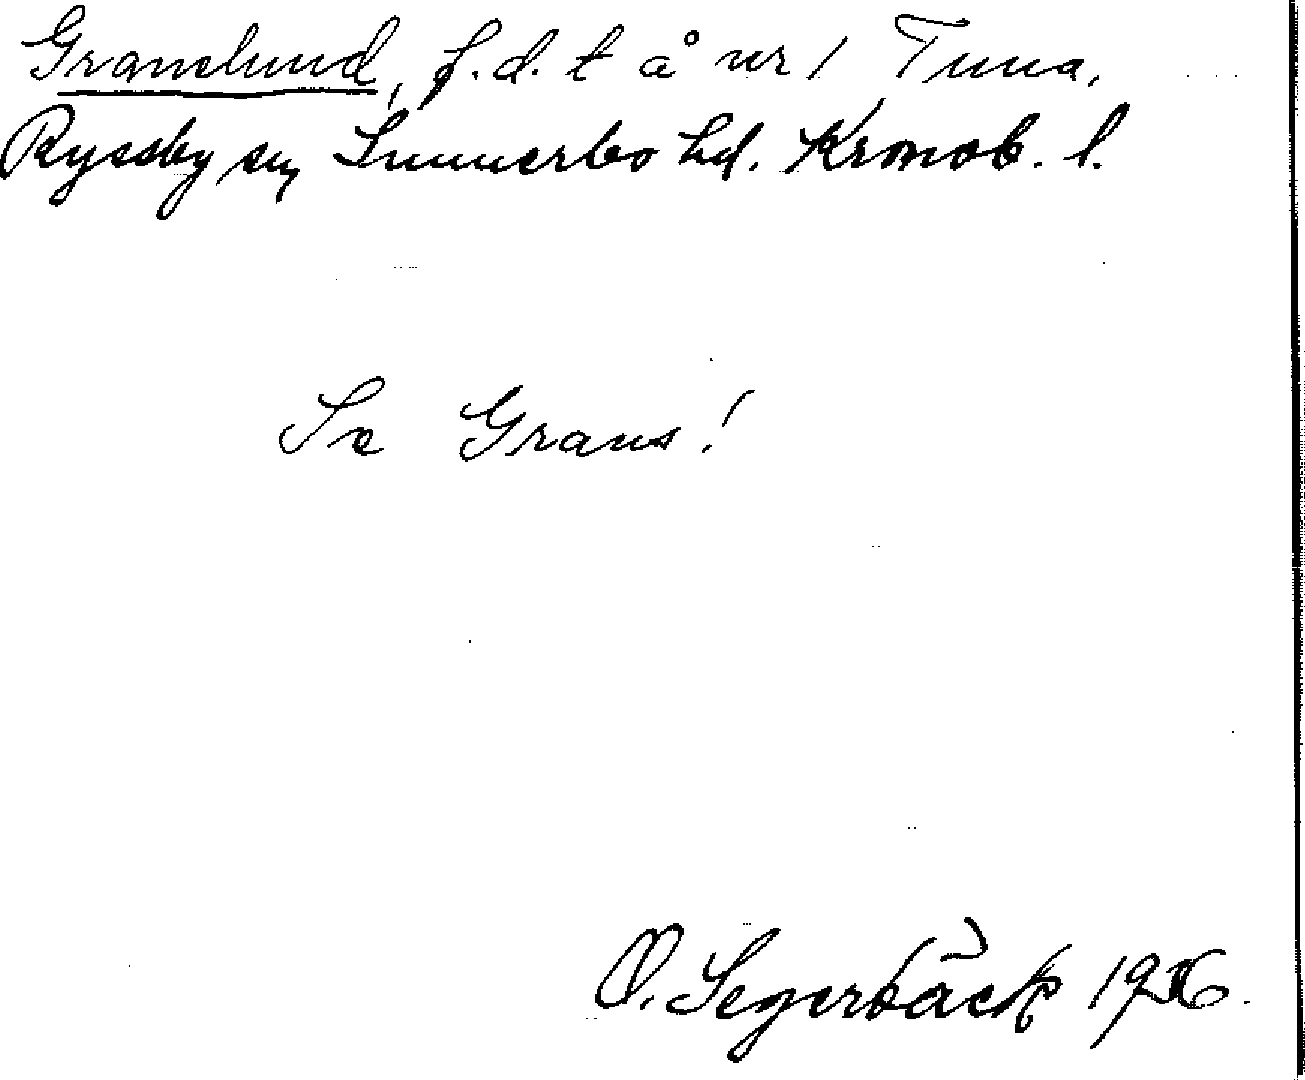 Granelund, f.d. t å nr 1 Tuna,
Ryssby sn, Sunnerbo hd. Kronob. l.
Se Grans!
O. Segerbäck 1936.